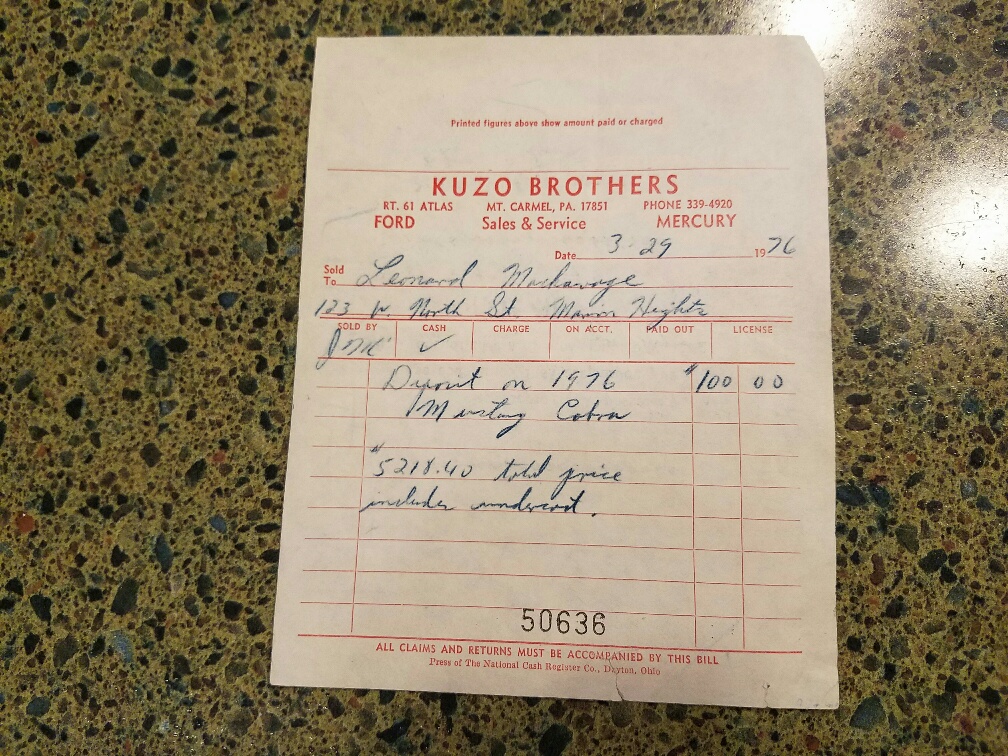 Printed figures above show amount paid or charged
KUZO BROTHERS
RT. 61 ATLAS MT. CARMEL, PA. 17851 PHONE 339-4920
FORD Sales & Service MERCURY
Date 3-29 1976
Sold To Leonard
123 W. North St. Marion Heights
SOLD BY CASH CHARGE ON ACCT. PAID OUT LICENSE
✓
Deposit on 1976 $100 00
Mustang Cobra
$5218.40 total price
includes undercoat.
50636
ALL CLAIMS AND RETURNS MUST BE ACCOMPANIED BY THIS BILL
Press of The National Cash Register Co., Dayton, Ohio